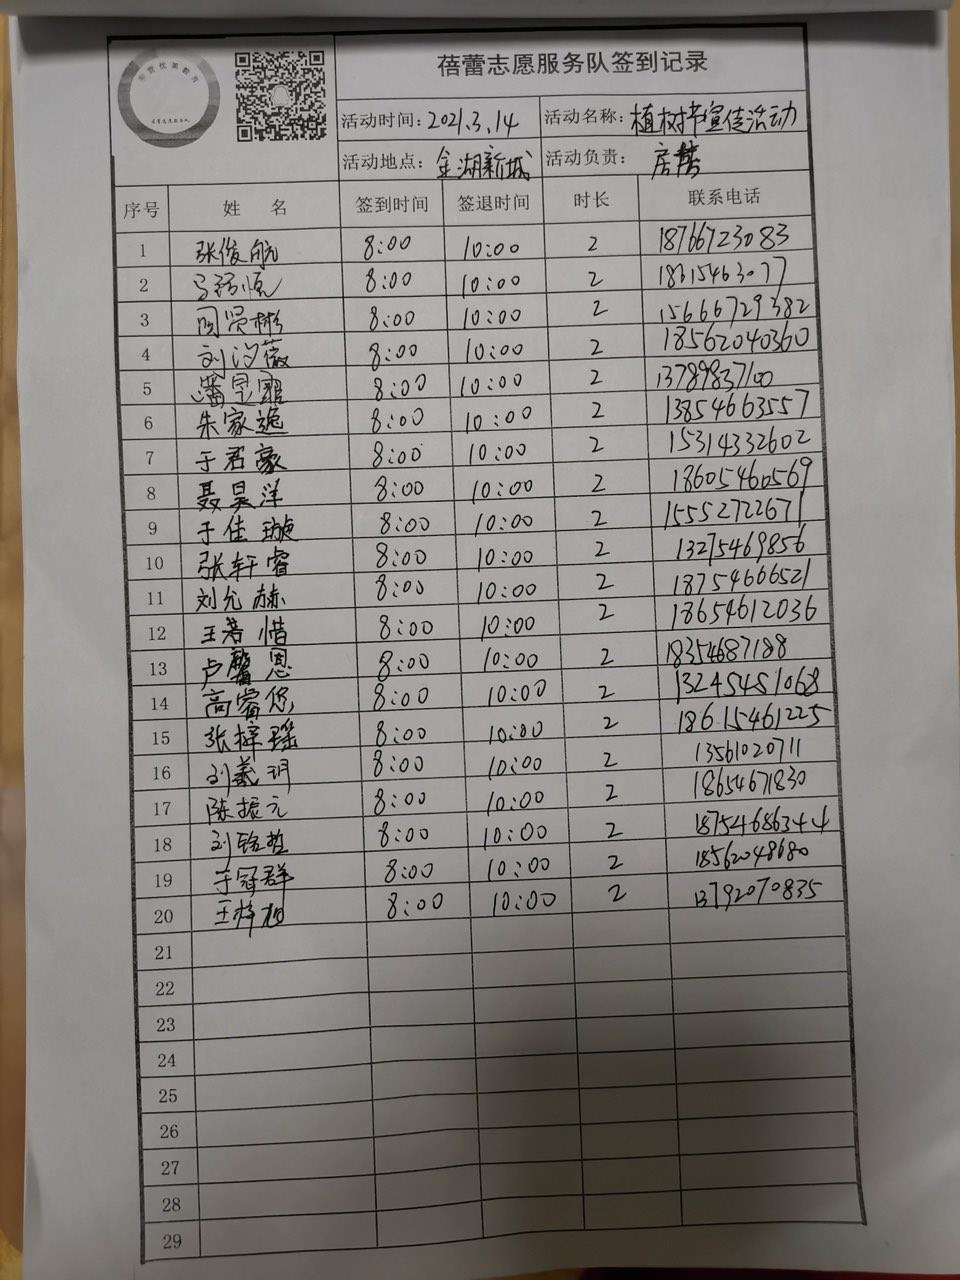 东营优莱教育
蓓蕾志愿服务队签到记录
活动时间：2021.3.14 活动名称：植树节宣传活动
活动地点：金湖新城 活动负责：
序号 姓 名 签到时间 签退时间 时长 联系电话
1 张俊航 8:00 10:00 2 18766723083
2 8:00 10:00 2 18315463077
3 周贤彬 8:00 10:00 2 15666729382
4 刘汐薇 8:00 10:00 2 18562040360
5 潘昱 8:00 10:00 2 13789837100
6 朱家逸 8:00 10:00 2 13854663557
7 于君豪 8:00 10:00 2 15314332602
8 聂昊洋 8:00 10:00 2 18605460569
9 于佳璇 8:00 10:00 2 15552722671
10 张轩睿 8:00 10:00 2 13275469856
11 刘允赫 8:00 10:00 2 18754606521
12 王若惜 8:00 10:00 2 18654612036
13 卢馨恩 8:00 10:00 2 18354687188
14 高睿悠 8:00 10:00 2 13245451068
15 张梓瑶 8:00 10:00 2 18615461225
16 刘羲玥 8:00 10:00 2 13561020711
17 陈振元 8:00 10:00 2 18654671830
18 刘铭哲 8:00 10:00 2 18754686344
19 于冠群 8:00 10:00 2 18562048680
20 王梓旭 8:00 10:00 2 13792070835
21
22
23
24
25
26
27
28
29